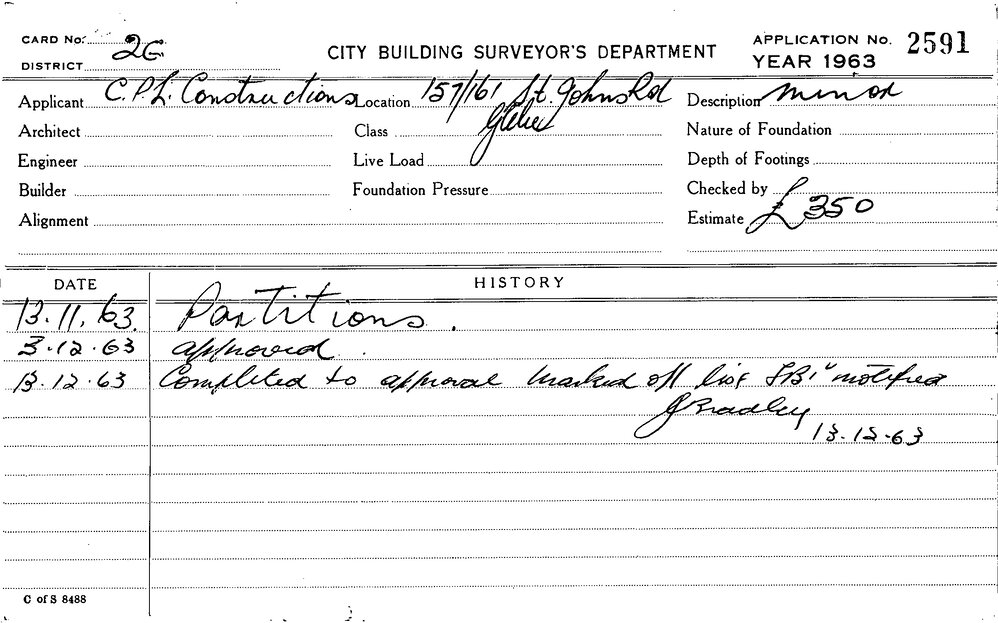 CARD No. 2C
DISTRICT
CITY BUILDING SURVEYOR'S DEPARTMENT
APPLICATION No. 2591
YEAR 1963
Applicant C.P.L. Constructions Location 157/161 St. Johns Rd Description minor
Architect Class Glebe Nature of Foundation
Engineer Live Load Depth of Footings
Builder Foundation Pressure Checked by
Alignment Estimate £350
DATE HISTORY
13.11.63. Partitions.
3.12.63 approved.
13.12.63 Completed to approval marked off list notified
J Bradley
13.12.63
C of S 8488